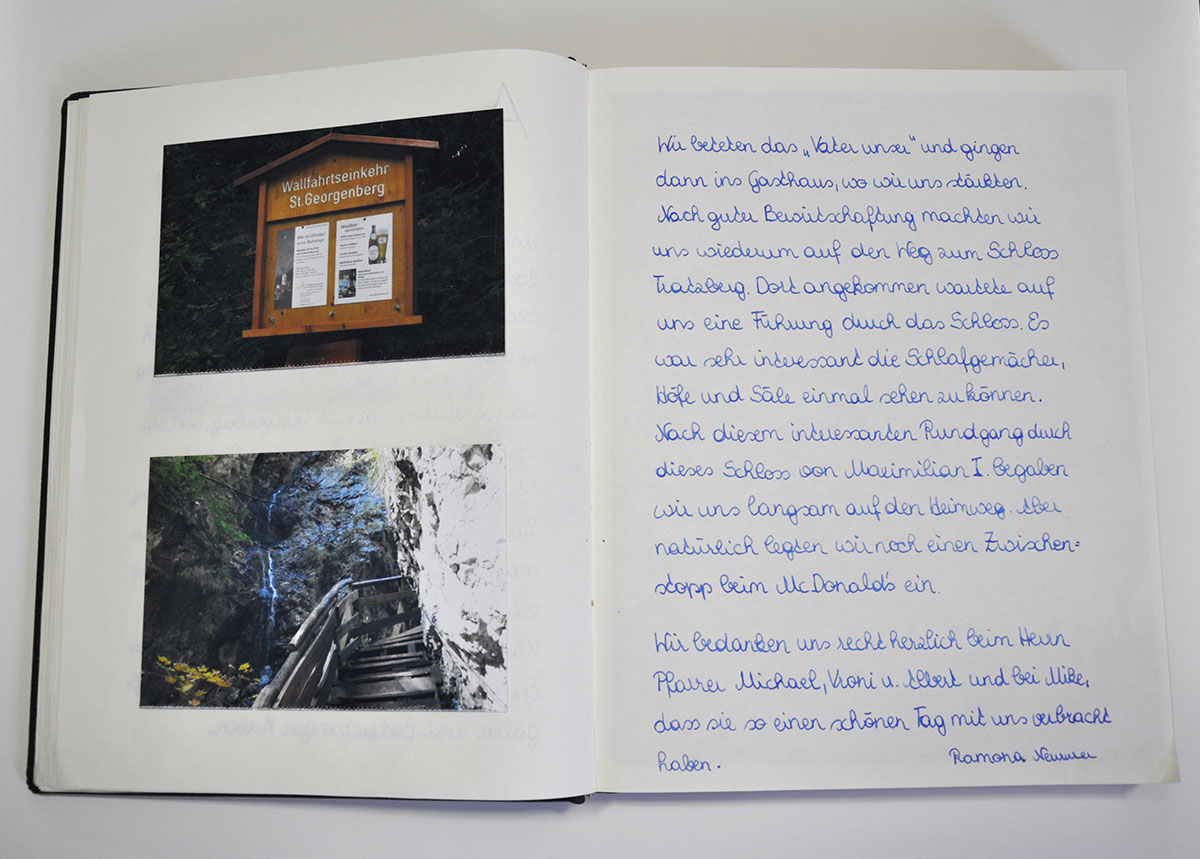 Wallfahrtseinkehr
St.Georgenberg
Wir beteten das „Vater unser“ und gingen
dann ins Gasthaus, wo wir uns stärkten.
Nach guter Bewirtschaftung machten wir
uns wiederum auf den Weg zum Schloss
Tratzberg. Dort angekommen wartete auf
uns eine Führung durch das Schloss. Es
war sehr interessant die Schlafgemächer,
Höfe und Säle einmal sehen zu können.
Nach diesem interessanten Rundgang durch
dieses Schloss von Maximilian I. begaben
wir uns langsam auf den Heimweg. Aber
natürlich legten wir noch einen Zwischen=
stopp beim McDonald's ein.
Wir bedanken uns recht herzlich beim Herrn
Pfarrer Michael, Vroni u. Albert und bei Mike,
dass sie so einen schönen Tag mit uns verbracht
haben.
Ramona